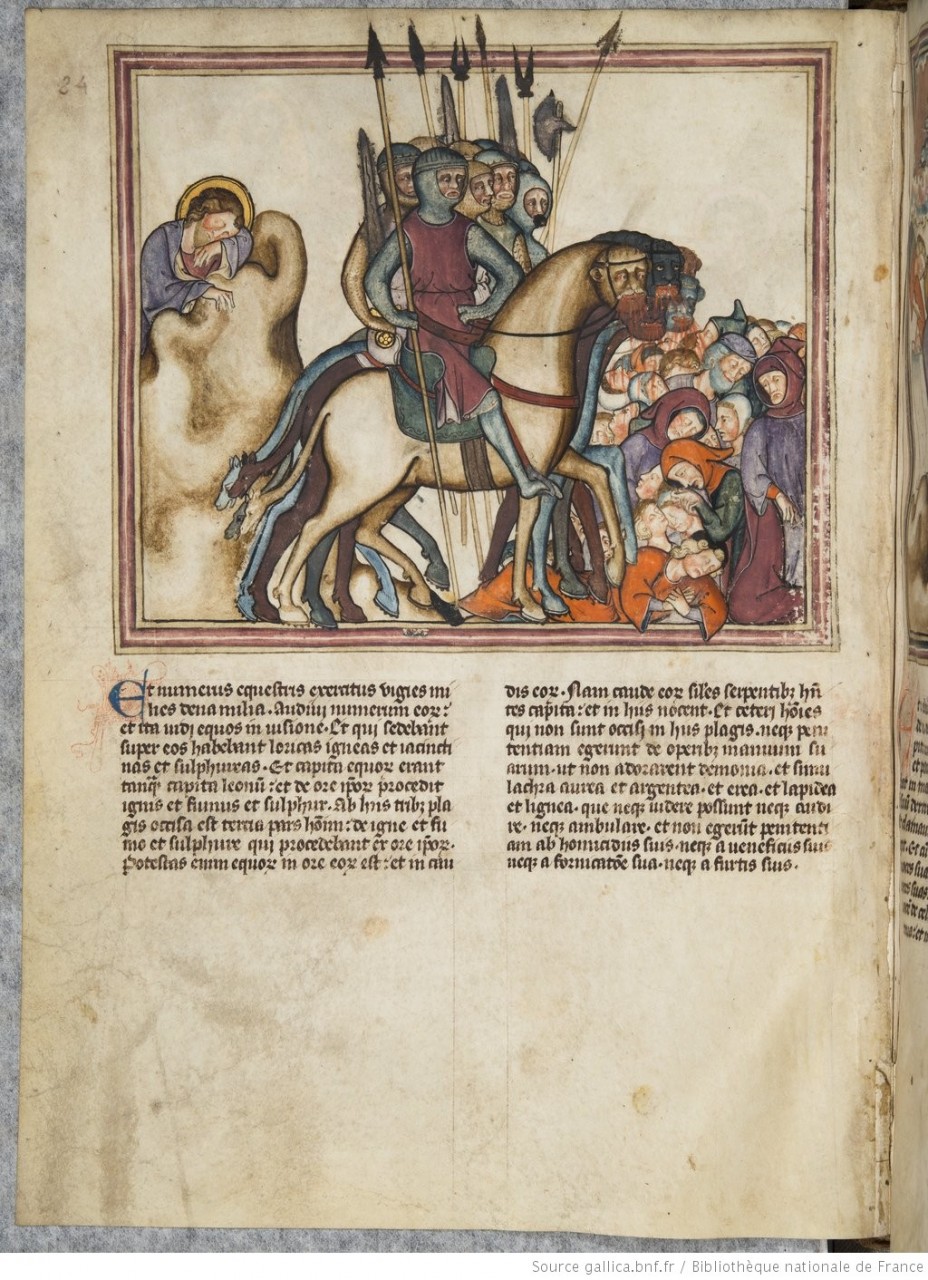 24
Et numerus equestris exercitus vigies mi
lies dena milia. Audiui numerum eor:
et ita uidi equos in uisione. Et qui sedebant
super eos habebant loricas igneas et iacincti
nas et sulphureas. Et capita equor erant
tanq capita leonu: et de ore ipor procedit
ignis et fumus et sulphur. Ab hiis trib pla
gis occisa est tercia pars homi: de igne et fu
mo et sulphure qui procedebant ex ore ipor.
Potestas enim equor in ore eor est: et in cau
dis eor. Nam caude eor siles serpentib hn
tes capita: et in hiis nocent. Et ceteri hoies
qui non sunt occisi in hiis plagis. neq peni
tentiam egerunt de operib manuum su
arum. ut non adorarent demonia. et simu
lachra aurea et argentea. et erea. et lapidea
et lignea. que neq uidere possunt neq audi
re. neq ambulare. et non egerut penitenti
am ab homicidiis suis. neq a ueneficiis suis
neq a fornicatoe sua. neq a furtis suis.
Source gallica.bnf.fr / Bibliothèque nationale de France